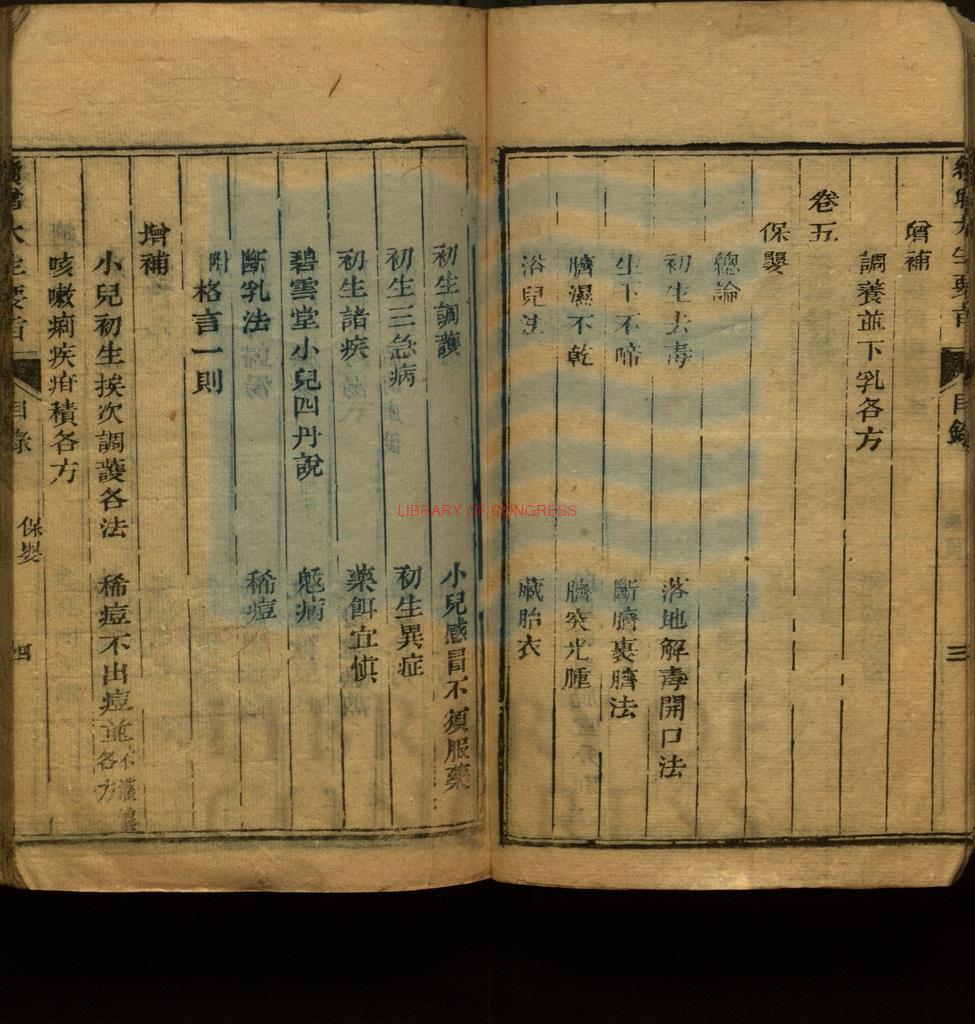 增補
調養並下乳各方
卷五
保嬰
總論
初生去毒　落地解毒開口法
生下不啼　斷臍裹臍法
臍濕不乾　臍突光腫
浴兒法　藏胎衣
目錄
三
初生調護　小兒感冒不須服藥
初生三急病　初生異症
初生諸疾　藥餌宜慎
碧雲堂小兒四丹說　鬾病
斷乳法　稀痘
附格言一則
增補
小兒初生挨次調護各法　稀痘不出痘並不灌漿各方
咳嗽痢疾疳積各方
大生要旨
目錄
保嬰
四
LIBRARY OF CONGRESS